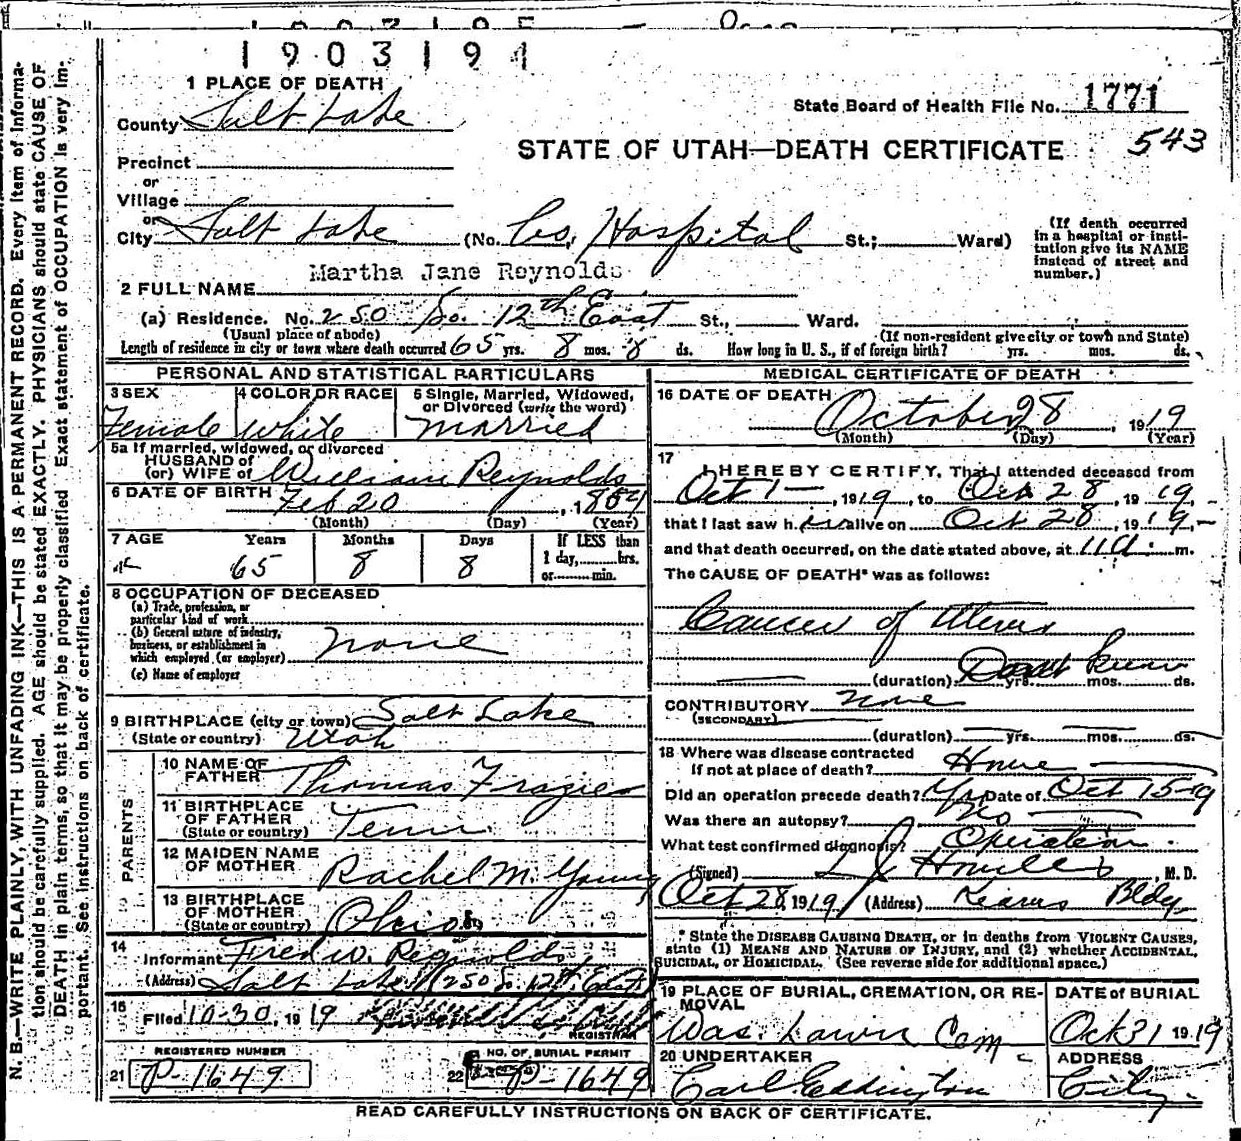 1903194
1 PLACE OF DEATH
State Board of Health File No. 1771
County Salt Lake
543
STATE OF UTAH—DEATH CERTIFICATE
Precinct
or
Village
or
City Salt Lake (No. Co. Hospital St.; Ward)
(If death occurred in a hospital or institution give its NAME instead of street and number.)
Martha Jane Reynolds
2 FULL NAME
(a) Residence. No. 250 So. 12th East St., Ward.
(Usual place of abode) (If non-resident give city or town and State)
Length of residence in city or town where death occurred 65 yrs. 8 mos. 8 ds. How long in U. S., if of foreign birth? yrs. mos. ds.
PERSONAL AND STATISTICAL PARTICULARS
3 SEX 4 COLOR OR RACE 5 Single, Married, Widowed, or Divorced (write the word)
Female White Married
5a If married, widowed, or divorced
HUSBAND of
(or) WIFE of William Reynolds
6 DATE OF BIRTH Feb 20, 1854
(Month) (Day) (Year)
7 AGE Years Months Days If LESS than
65 8 8 1 day, hrs.
or min.
8 OCCUPATION OF DECEASED
(a) Trade, profession, or
particular kind of work
(b) General nature of industry,
business, or establishment in
which employed (or employer) none
(c) Name of employer
9 BIRTHPLACE (city or town) Salt Lake
(State or country) Utah
PARENTS
10 NAME OF
FATHER Thomas Frazier
11 BIRTHPLACE
OF FATHER
(State or country) Tenn
12 MAIDEN NAME
OF MOTHER Rachel M. Young
13 BIRTHPLACE
OF MOTHER
(State or country) Ohio
14
Informant Fred W. Reynolds
(Address) Salt Lake (250 So. 12th East)
15
Filed 10-30, 1919
REGISTRAR
REGISTERED NUMBER NO. OF BURIAL PERMIT
21 P-1649 22 P-1649
MEDICAL CERTIFICATE OF DEATH
16 DATE OF DEATH October 28, 1919
(Month) (Day) (Year)
17
I HEREBY CERTIFY, That I attended deceased from
Oct 1—, 1919, to Oct 28, 1919,
that I last saw her alive on Oct 28, 1919
and that death occurred, on the date stated above, at 11 a. m.
The CAUSE OF DEATH* was as follows:
Cancer of Uterus
(duration) Dont know yrs. mos. ds.
CONTRIBUTORY none
(SECONDARY)
(duration) yrs. mos. ds.
18 Where was disease contracted
if not at place of death? Home
Did an operation precede death? Yes Date of Oct 15-19
Was there an autopsy? No
What test confirmed diagnosis? Operation
(Signed) M. D.
Oct 28, 1919 (Address) Kearns Bldg
* State the DISEASE CAUSING DEATH, or in deaths from VIOLENT CAUSES,
state (1) MEANS AND NATURE OF INJURY, and (2) whether ACCIDENTAL,
SUICIDAL, or HOMICIDAL. (See reverse side for additional space.)
19 PLACE OF BURIAL, CREMATION, OR RE-
MOVAL DATE of BURIAL
Was. Lawn Cem Oct 31 1919
20 UNDERTAKER ADDRESS
Carl Eddington City
READ CAREFULLY INSTRUCTIONS ON BACK OF CERTIFICATE.
N. B.—WRITE PLAINLY, WITH UNFADING INK—THIS IS A PERMANENT RECORD. Every item of informa-
tion should be carefully supplied. AGE should be stated EXACTLY. PHYSICIANS should state CAUSE OF
DEATH in plain terms, so that it may be properly classified. Exact statement of OCCUPATION is very im-
portant. See instructions on back of certificate.